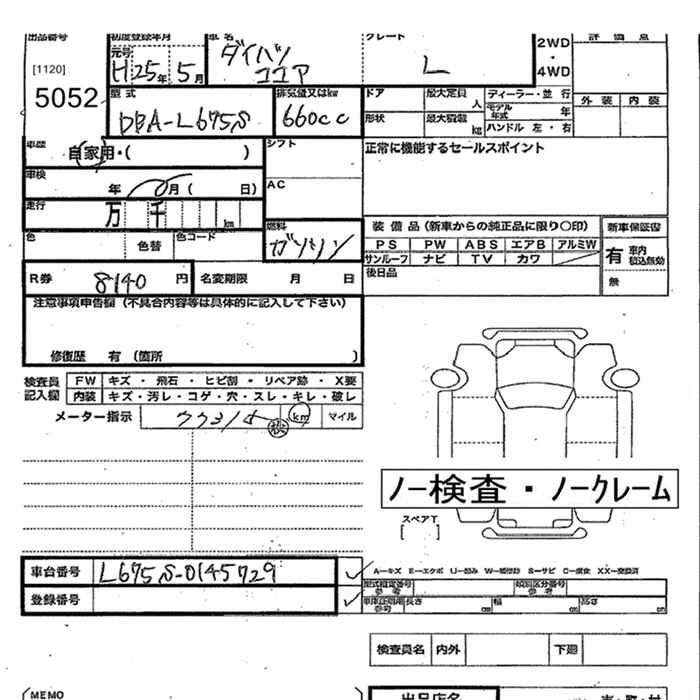 出品番号 初度登録年月 車名 グレード 評価点
[1120] 元号 H25年 5月 ダイハツ ココア L 2WD・4WD
5052 型式 DBA-L675S 排気量又はkw 660cc ドア 最大定員 人 ディーラー・並行 外装 内装
形状 最大積載 kg モデル年式 年
ハンドル 左・右
車歴 自家用・( ) シフト 正常に機能するセールスポイント
車検 年 月( 日) AC
走行 万 千 km
色 色替 色コード 燃料 ガソリン
装備品(新車からの純正品に限り○印) 新車保証書
PS PW ABS エアB アルミW 有 車内積込無効
サンルーフ ナビ TV カワ
R券 8140 円 名変期限 月 日 後日品 無
注意事項申告欄(不具合内容等は具体的に記入して下さい)
修復歴 有 (箇所 )
検査員記入欄 FW キズ・飛石・ヒビ割・リペア跡・X要
内装 キズ・汚レ・コゲ・穴・スレ・キレ・破レ
メーター指示 km マイル
ノー検査・ノークレーム
スペアT
[ ]
車台番号 L675S-0145729
A―キズ E―エクボ S―サビ XX―交換済
登録番号
型式指定番号 参考 類別区分番号 参考
車庫証明用参考 長さ cm 幅 cm 高さ cm
検査員名 内外 下廻
MEMO 出品店名